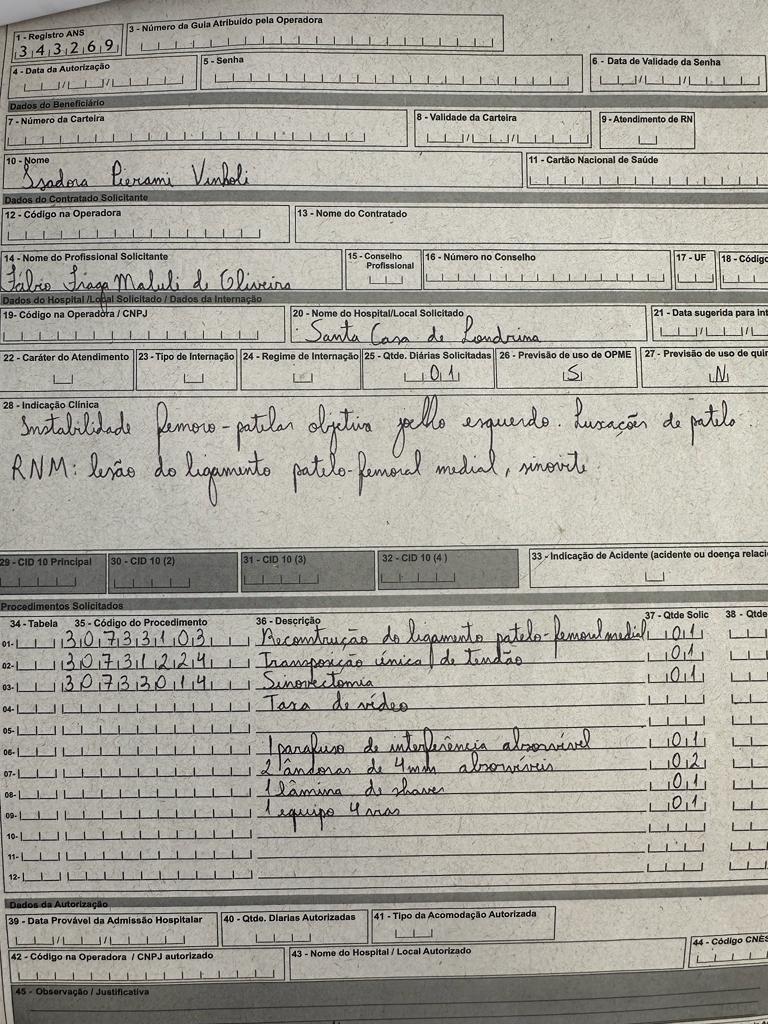 1 - Registro ANS
343269
3 - Número da Guia Atribuido pela Operadora
4 - Data da Autorização
5 - Senha
6 - Data de Validade da Senha
Dados do Beneficiário
7 - Número da Carteira
8 - Validade da Carteira
9 - Atendimento de RN
10 - Nome
Isadora Pierami Vinholi
11 - Cartão Nacional de Saúde
Dados do Contratado Solicitante
12 - Código na Operadora
13 - Nome do Contratado
14 - Nome do Profissional Solicitante
Fábio Fraga Maluli de Oliveira
15 - Conselho Profissional
16 - Número no Conselho
17 - UF
18 - Código
Dados do Hospital /Local Solicitado / Dados da Internação
19- Código na Operadora / CNPJ
20 - Nome do Hospital/Local Solicitado
Santa Casa de Londrina
21 - Data sugerida para int
22 - Caráter do Atendimento
23 - Tipo de Internação
24 - Regime de Internação
25 - Qtde. Diárias Solicitadas
01
26 - Previsão de uso de OPME
S
27 - Previsão de uso de qui
N
28 - Indicação Clínica
Instabilidade femoro-patelar objetiva joelho esquerdo. Luxações de patela.
RNM: lesão do ligamento patelo-femoral medial, sinovite
29 - CID 10 Principal
30 - CID 10 (2)
31 - CID 10 (3)
32 - CID 10 (4 )
33 - Indicação de Acidente (acidente ou doença relaci
Procedimentos Solicitados
34 - Tabela 35 - Código do Procedimento 36 - Descrição 37 - Qtde Solic 38 - Qtde
01- 30733103 Reconstrução do ligamento patelo-femoral medial 01
02- 30731224 Transposição única de tendão 01
03- 30733014 Sinovectomia 01
04- Taxa de vídeo
05-
06- 1 parafuso de interferência absorvível 01
07- 2 âncoras de 4mm absorvíveis 02
08- 1 lâmina de shaver 01
09- 1 equipo 4 vias 01
10-
11-
12-
Dados da Autorização
39 - Data Provável da Admissão Hospitalar
40 - Qtde. Diarias Autorizadas
41 - Tipo da Acomodação Autorizada
42 - Código na Operadora / CNPJ autorizado
43 - Nome do Hospital / Local Autorizado
44 - Código CNES
45 - Observação / Justificativa